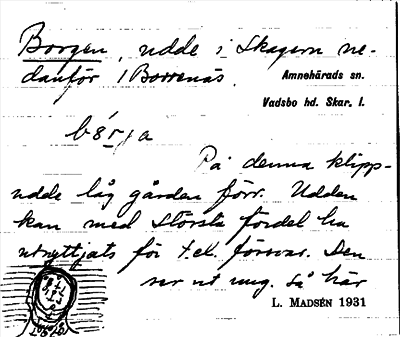 Borgen, udde i Skagern ne-
danför 1 Borrenäs.
Amnehärads sn.
Vadsbo hd. Skar. l.
På denna klipp-
udde låg gården förr. Udden
kan med största fördel ha
utnyttjats för t.ex. försvar. Den
ser ut ung. så här
L. MADSÉN 1931